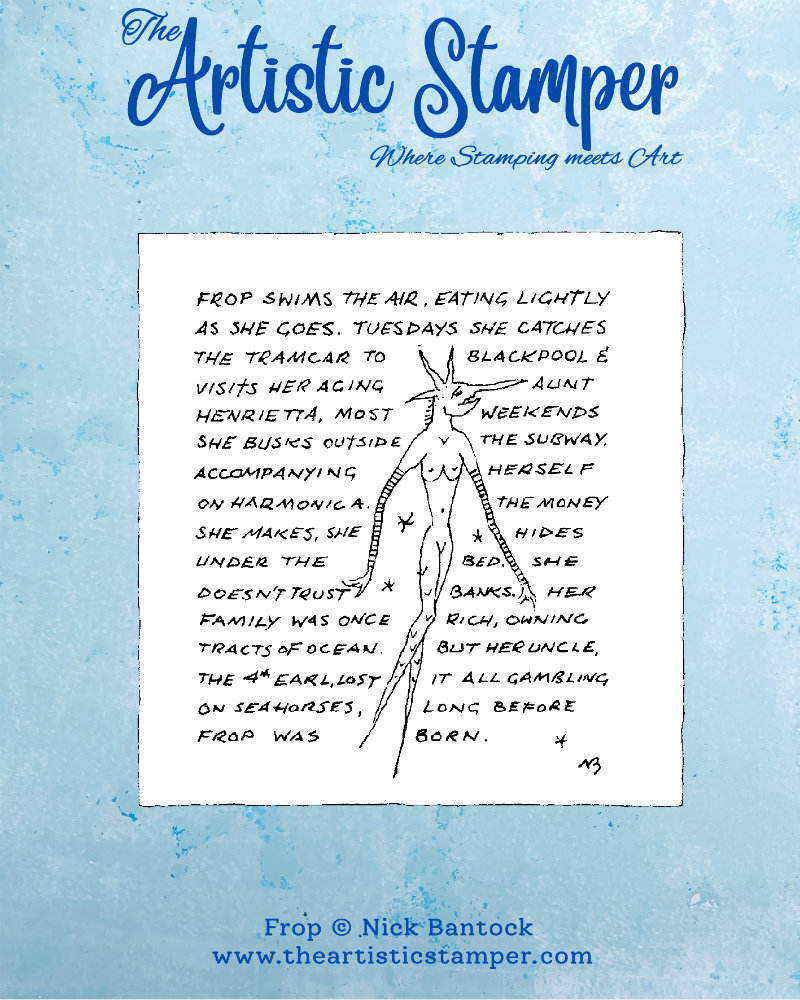 The
Artistic Stamper
Where Stamping meets Art
FROP SWIMS THE AIR, EATING LIGHTLY
AS SHE GOES. TUESDAYS SHE CATCHES
THE TRAMCAR TO BLACKPOOL &
VISITS HER AGING AUNT
HENRIETTA, MOST WEEKENDS
SHE BUSKS OUTSIDE THE SUBWAY.
ACCOMPANYING HERSELF
ON HARMONICA. THE MONEY
SHE MAKES, SHE HIDES
UNDER THE BED. SHE
DOESN'T TRUST BANKS. HER
FAMILY WAS ONCE RICH, OWNING
TRACTS OF OCEAN. BUT HER UNCLE,
THE 4th EARL, LOST IT ALL GAMBLING
ON SEAHORSES, LONG BEFORE
FROP WAS BORN.
NB
Frop © Nick Bantock
www.theartisticstamper.com